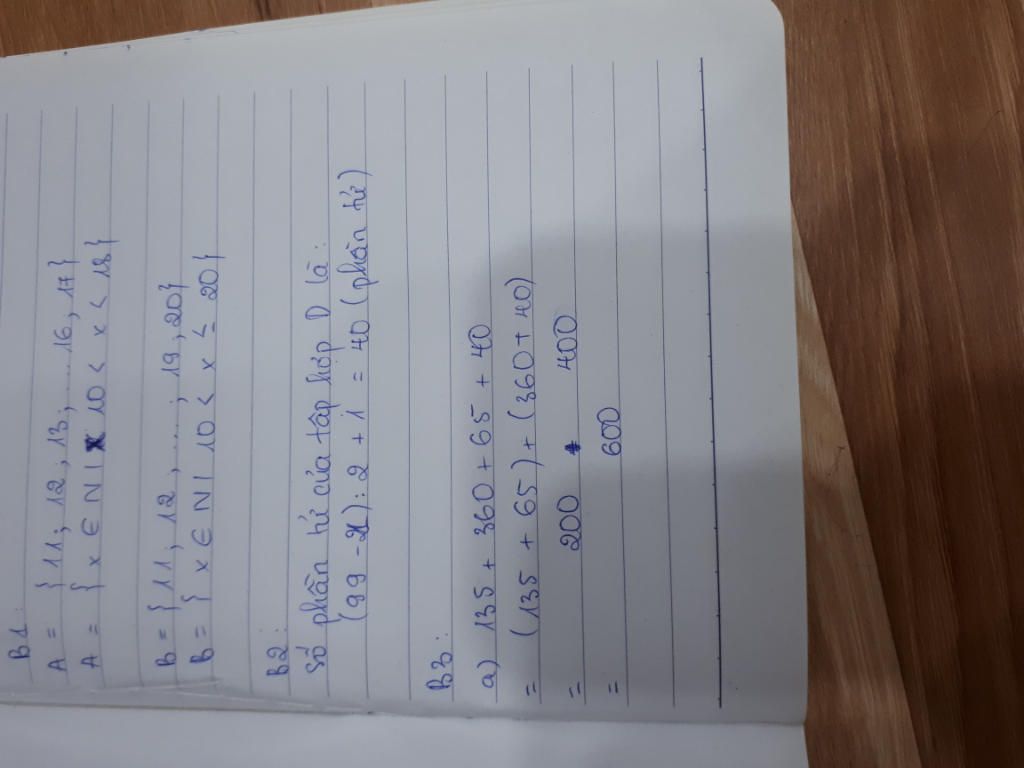 B1:
A = { 11 ; 12 ; 13 ; .... 16 , 17 }
A = { x ∈ N | 10 < x < 18 }
B = { 11 ; 12 , .... ; 19 , 20 }
B = { x ∈ N | 10 < x ≤ 20 }
B2:
Số phần tử của tập hợp D là:
(99 - 21) : 2 + 1 = 40 (phần tử)
B3:
a) 135 + 360 + 65 + 40
= (135 + 65) + (360 + 40)
= 200 + 400
= 600